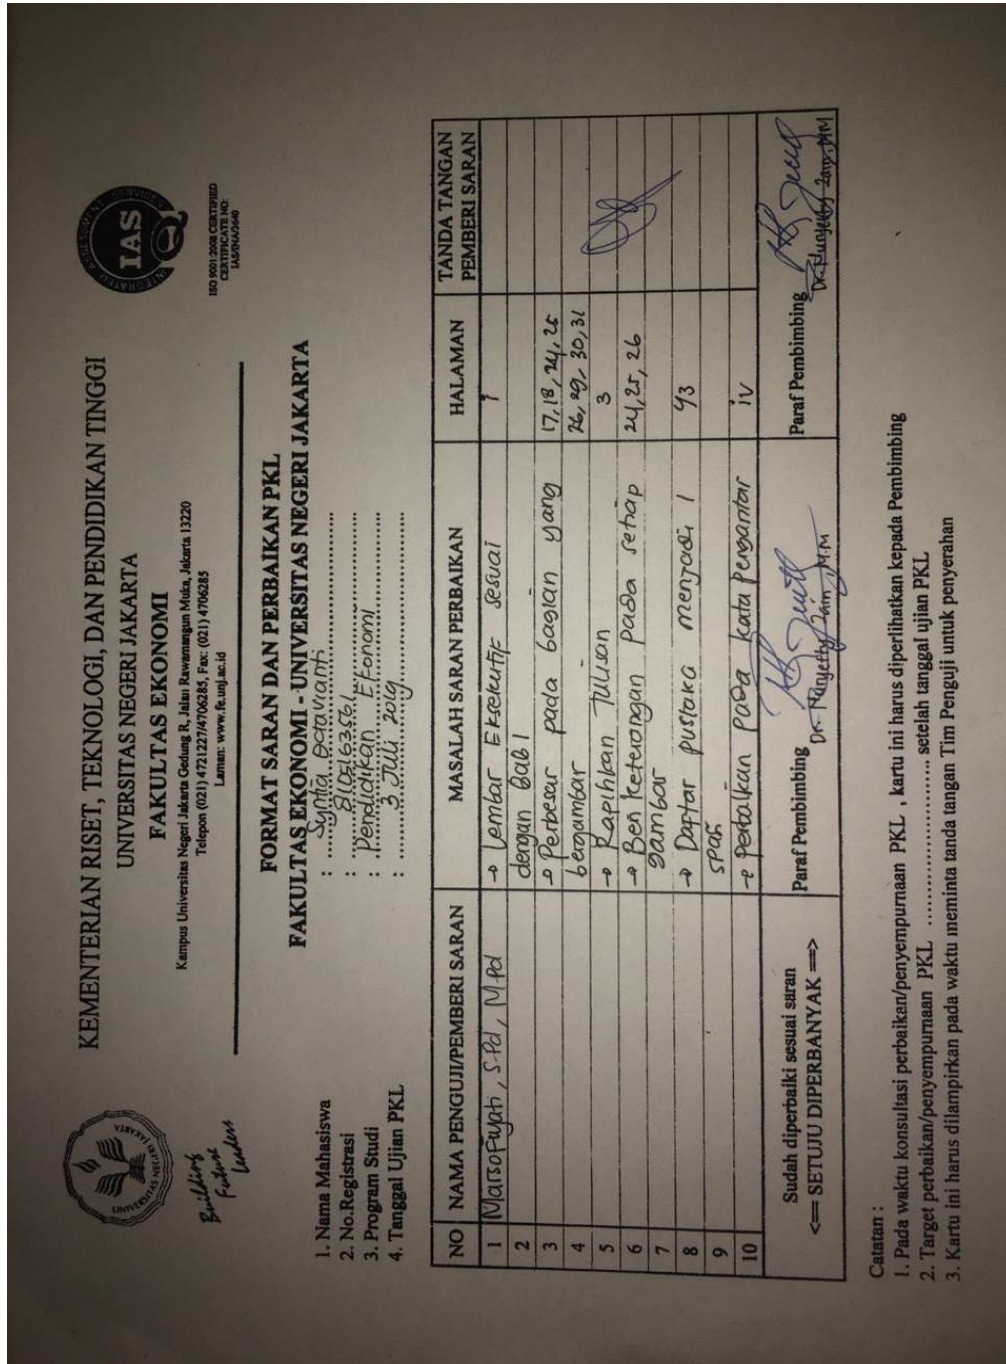 KEMENTERIAN RISET, TEKNOLOGI, DAN PENDIDIKAN TINGGI
UNIVERSITAS NEGERI JAKARTA
FAKULTAS EKONOMI
Kampus Universitas Negeri Jakarta Gedung R, Jalan Rawamangun Muka, Jakarta 13220
Telepon (021) 4721227/4706285, Fax: (021) 4706285
Laman: www.fe.unj.ac.id
UNIVERSITAS NEGERI JAKARTA
Building
Future
Leaders
INTEGRATED ASSESSMENT SERVICES
IAS
ISO 9001:2008 CERTIFIED
CERTIFICATE NO:
IAS/INA/3640
FORMAT SARAN DAN PERBAIKAN PKL
FAKULTAS EKONOMI - UNIVERSITAS NEGERI JAKARTA
1. Nama Mahasiswa : Syntia
2. No.Registrasi :
3. Program Studi : Pendidikan Ekonomi
4. Tanggal Ujian PKL : 3 Juli 2019
NO NAMA PENGUJI/PEMBERI SARAN MASALAH SARAN PERBAIKAN HALAMAN TANDA TANGAN PEMBERI SARAN
1 Marsofiyati, S.Pd, M.Pd → Lembar Eksekutif sesuai 1
2 dengan bab 1
3 → Perbesar pada bagian yang 17, 18, 24, 25
4 bergambar 26, 29, 30, 31
5 → Rapihkan Tulisan 3
6 → Beri keterangan pada setiap 24, 25, 26
7 gambar
8 → Daftar pustaka menjadi 1 43
9 spasi
10 → Perbaikan pada kata Pengantar iv
Sudah diperbaiki sesuai saran
<=== SETUJU DIPERBANYAK ===>
Paraf Pembimbing
Dr. Nuryetty Zain, MM
Paraf Pembimbing
Dr. Nuryetty Zain, MM
Catatan :
1. Pada waktu konsultasi perbaikan/penyempurnaan PKL , kartu ini harus diperlihatkan kepada Pembimbing
2. Target perbaikan/penyempurnaan PKL ........................ setelah tanggal ujian PKL
3. Kartu ini harus dilampirkan pada waktu meminta tanda tangan Tim Penguji untuk penyerahan